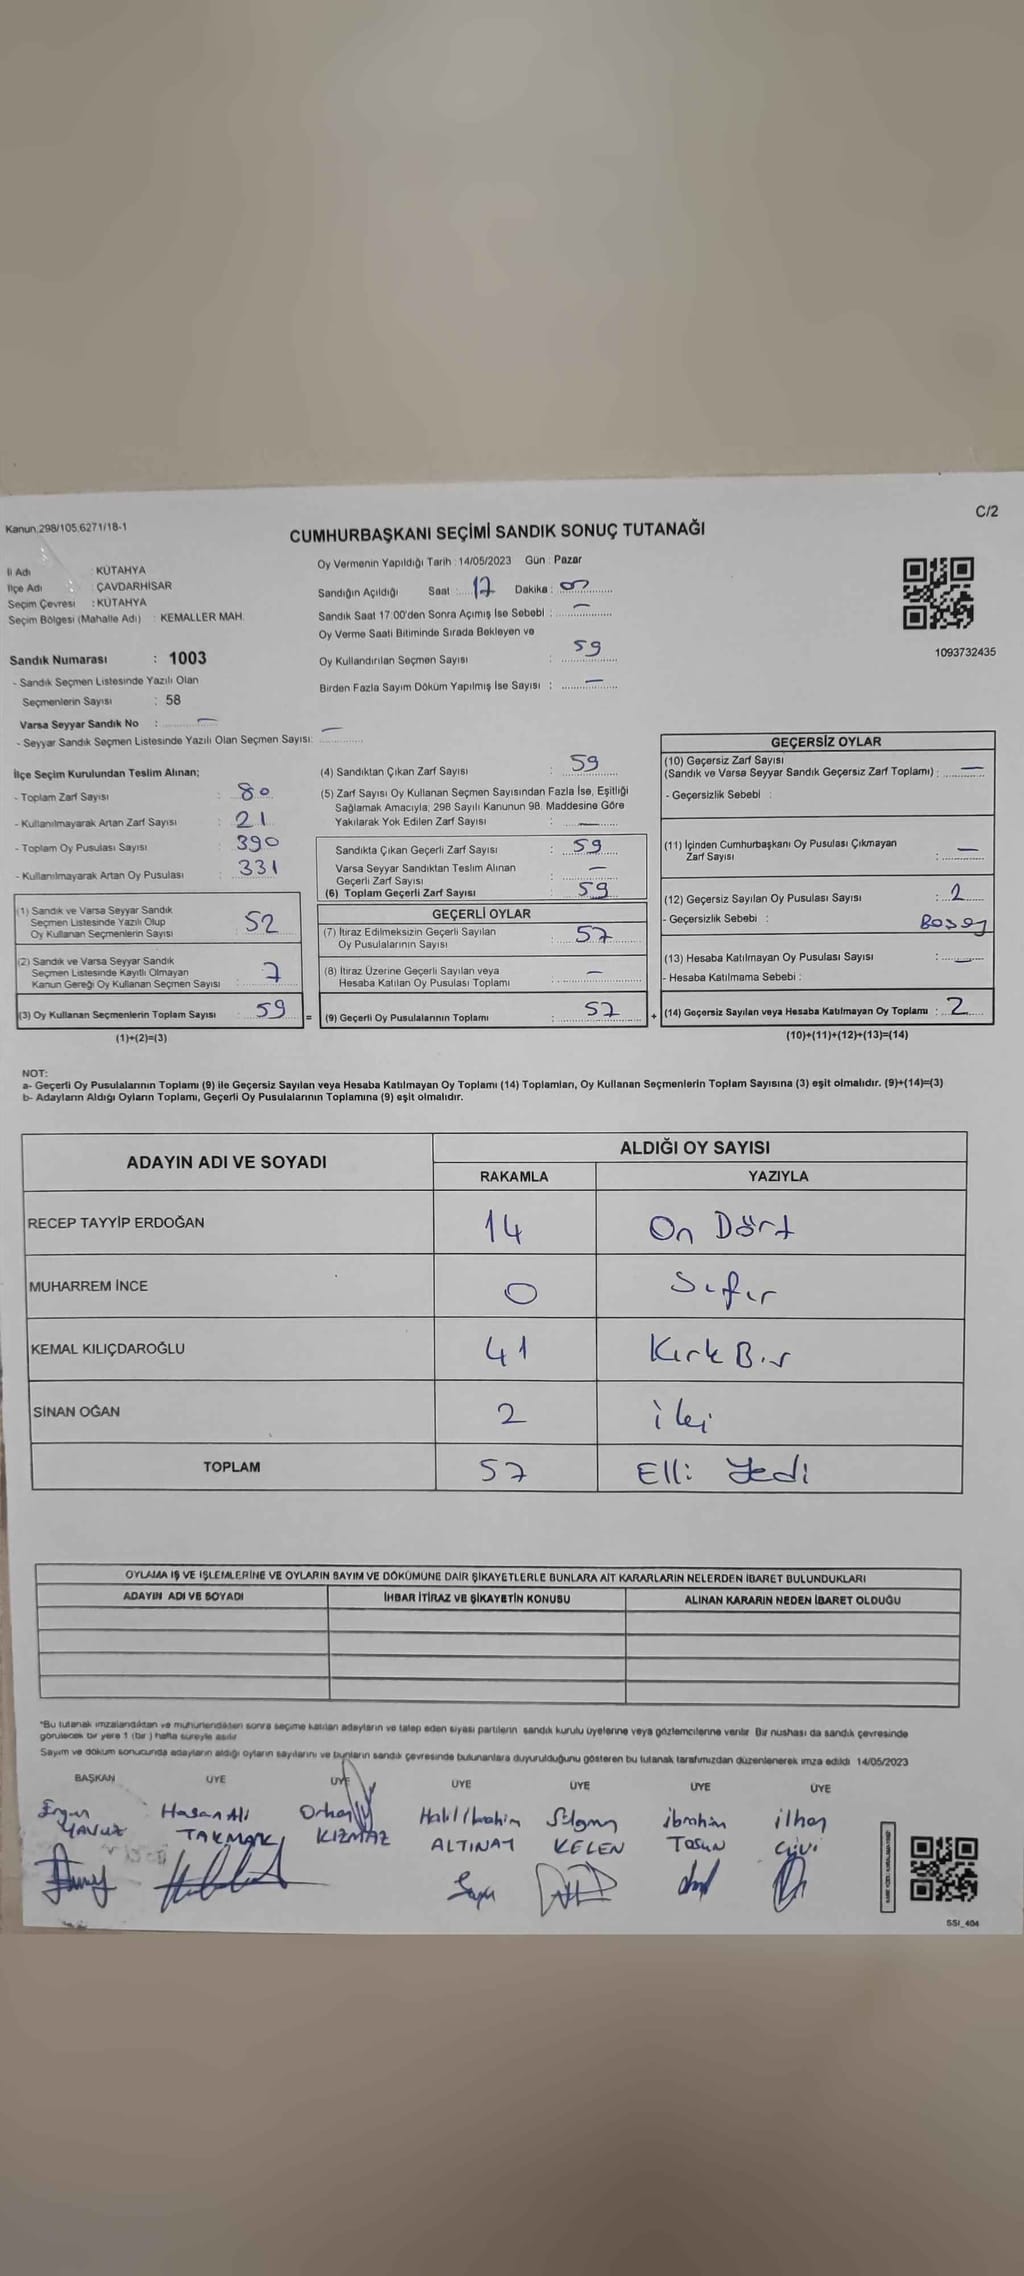 Kanun.298/105,6271/18-1
C/2
CUMHURBAŞKANI SEÇİMİ SANDIK SONUÇ TUTANAĞI
İl Adı : KÜTAHYA
İlçe Adı : ÇAVDARHİSAR
Seçim Çevresi : KÜTAHYA
Seçim Bölgesi (Mahalle Adı) : KEMALLER MAH.
Sandık Numarası : 1003
- Sandık Seçmen Listesinde Yazılı Olan
Seçmenlerin Sayısı : 58
Varsa Seyyar Sandık No : —
- Seyyar Sandık Seçmen Listesinde Yazılı Olan Seçmen Sayısı: —
Oy Vermenin Yapıldığı Tarih : 14/05/2023 Gün : Pazar
Sandığın Açıldığı Saat : 17 Dakika : 00
Sandık Saat 17:00'den Sonra Açımış İse Sebebi : —
Oy Verme Saati Bitiminde Sırada Bekleyen ve
Oy Kullandırılan Seçmen Sayısı : 59
Birden Fazla Sayım Döküm Yapılmış İse Sayısı : —
1093732435
İlçe Seçim Kurulundan Teslim Alınan;
- Toplam Zarf Sayısı : 80
- Kullanılmayarak Artan Zarf Sayısı : 21
- Toplam Oy Pusulası Sayısı : 390
- Kullanılmayarak Artan Oy Pusulası : 331
(1) Sandık ve Varsa Seyyar Sandık
Seçmen Listesinde Yazılı Olup
Oy Kullanan Seçmenlerin Sayısı 52
(2) Sandık ve Varsa Seyyar Sandık
Seçmen Listesinde Kayıtlı Olmayan
Kanun Gereği Oy Kullanan Seçmen Sayısı : 7
(3) Oy Kullanan Seçmenlerin Toplam Sayısı : 59 =
(1)+(2)=(3)
(4) Sandıktan Çıkan Zarf Sayısı : 59
(5) Zarf Sayısı Oy Kullanan Seçmen Sayısından Fazla İse, Eşitliği
Sağlamak Amacıyla; 298 Sayılı Kanunun 98. Maddesine Göre
Yakılarak Yok Edilen Zarf Sayısı : —
Sandıkta Çıkan Geçerli Zarf Sayısı : 59
Varsa Seyyar Sandıktan Teslim Alınan
Geçerli Zarf Sayısı : —
(6) Toplam Geçerli Zarf Sayısı : 59
GEÇERLİ OYLAR
(7) İtiraz Edilmeksizin Geçerli Sayılan
Oy Pusulalarının Sayısı : 57
(8) İtiraz Üzerine Geçerli Sayılan veya
Hesaba Katılan Oy Pusulası Toplamı : —
(9) Geçerli Oy Pusulalarının Toplamı : 57 +
GEÇERSİZ OYLAR
(10) Geçersiz Zarf Sayısı
(Sandık ve Varsa Seyyar Sandık Geçersiz Zarf Toplamı) : —
- Geçersizlik Sebebi :
(11) İçinden Cumhurbaşkanı Oy Pusulası Çıkmayan
Zarf Sayısı : —
(12) Geçersiz Sayılan Oy Pusulası Sayısı : 2
- Geçersizlik Sebebi :
(13) Hesaba Katılmayan Oy Pusulası Sayısı : —
- Hesaba Katılmama Sebebi :
(14) Geçersiz Sayılan veya Hesaba Katılmayan Oy Toplamı : 2
(10)+(11)+(12)+(13)=(14)
NOT:
a- Geçerli Oy Pusulalarının Toplamı (9) ile Geçersiz Sayılan veya Hesaba Katılmayan Oy Toplamı (14) Toplamları, Oy Kullanan Seçmenlerin Toplam Sayısına (3) eşit olmalıdır. (9)+(14)=(3)
b- Adayların Aldığı Oyların Toplamı, Geçerli Oy Pusulalarının Toplamına (9) eşit olmalıdır.
ADAYIN ADI VE SOYADI ALDIĞI OY SAYISI
RAKAMLA YAZIYLA
RECEP TAYYİP ERDOĞAN 14 On Dört
MUHARREM İNCE 0 Sıfır
KEMAL KILIÇDAROĞLU 41 Kırk Bir
SİNAN OĞAN 2 iki
TOPLAM 57 Elli Yedi
OYLAMA İŞ VE İŞLEMLERİNE VE OYLARIN SAYIM VE DÖKÜMÜNE DAİR ŞİKAYETLERLE BUNLARA AİT KARARLARIN NELERDEN İBARET BULUNDUKLARI
ADAYIN ADI VE SOYADI İHBAR İTİRAZ VE ŞİKAYETİN KONUSU ALINAN KARARIN NEDEN İBARET OLDUĞU
*Bu tutanak imzalandıktan ve mühürlendikten sonra seçime katılan adayların ve talep eden siyasi partilerin sandık kurulu üyelerine veya gözlemcilerine verilir. Bir nüshası da sandık çevresinde
görülecek bir yere 1 (bir) hafta süreyle asılır.
Sayım ve döküm sonucunda adayların aldığı oyların sayılarını ve bunların sandık çevresinde bulunanlara duyurulduğunu gösteren bu tutanak tarafımızdan düzenlenerek imza edildi 14/05/2023
BAŞKAN ÜYE ÜYE ÜYE ÜYE ÜYE ÜYE
Ergun Hasan Ali Orhan Halil İbrahim ibrahim ilhan
YAVUZ TAKMAK KIZMAZ ALTINAY KELEN TOSUN Çivi
SSI_404